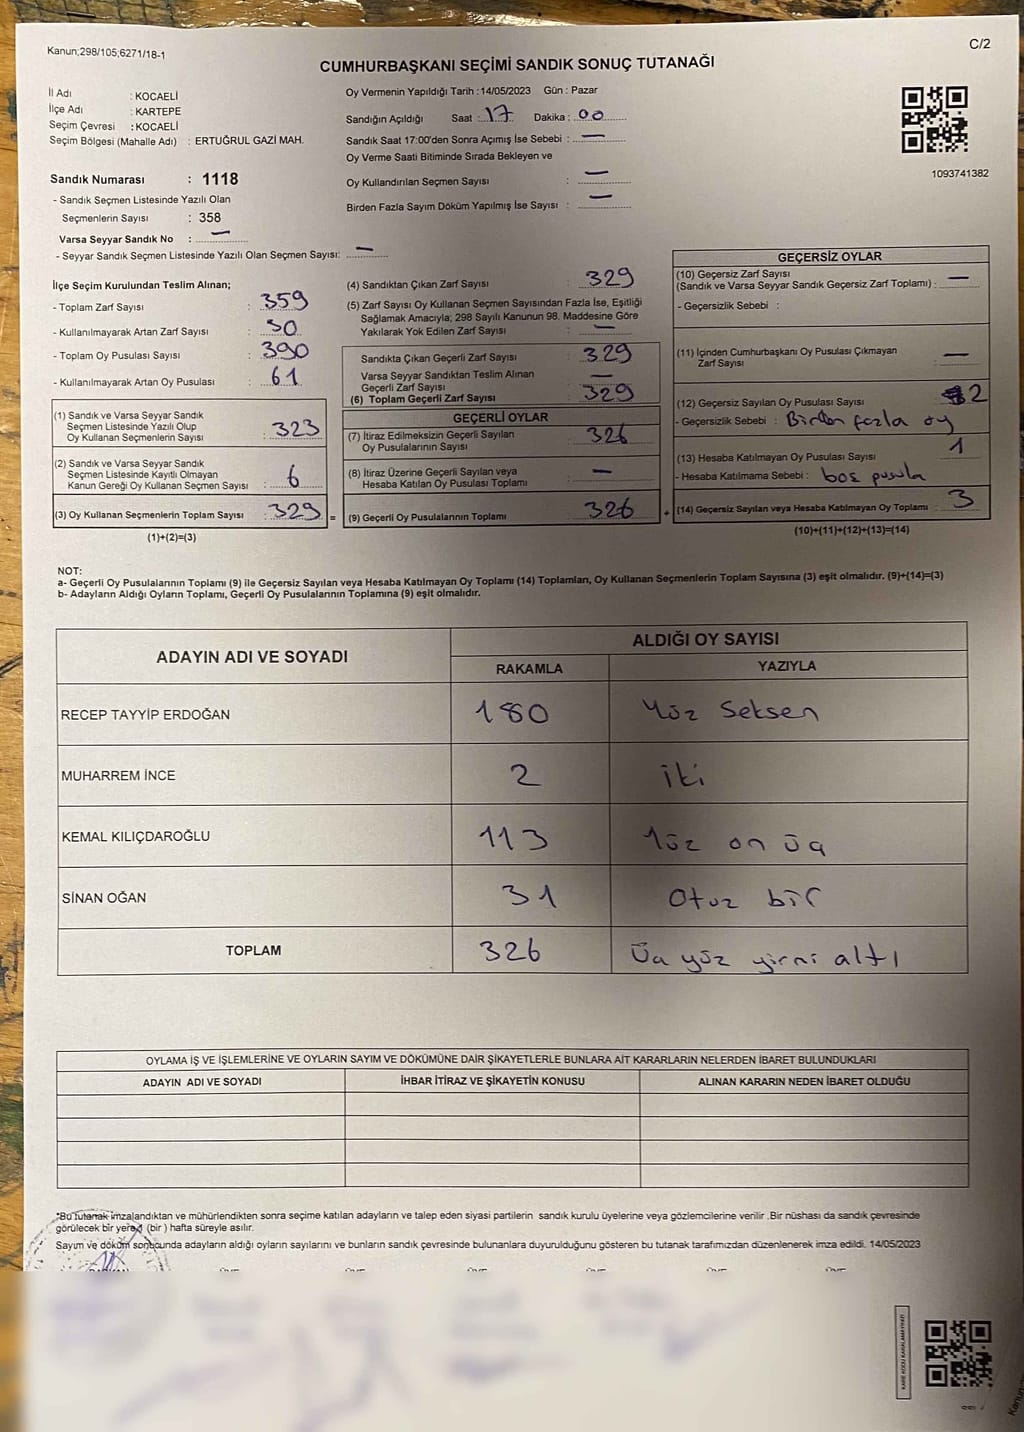 Kanun;298/105;6271/18-1
C/2
CUMHURBAŞKANI SEÇİMİ SANDIK SONUÇ TUTANAĞI
İl Adı : KOCAELİ
İlçe Adı : KARTEPE
Seçim Çevresi : KOCAELİ
Seçim Bölgesi (Mahalle Adı) : ERTUĞRUL GAZİ MAH.
Sandık Numarası : 1118
- Sandık Seçmen Listesinde Yazılı Olan
Seçmenlerin Sayısı : 358
Varsa Seyyar Sandık No : —
- Seyyar Sandık Seçmen Listesinde Yazılı Olan Seçmen Sayısı: —
Oy Vermenin Yapıldığı Tarih : 14/05/2023 Gün : Pazar
Sandığın Açıldığı Saat : 17 Dakika : 00
Sandık Saat 17:00'den Sonra Açımış İse Sebebi : —
Oy Verme Saati Bitiminde Sırada Bekleyen ve
Oy Kullandırılan Seçmen Sayısı : —
Birden Fazla Sayım Döküm Yapılmış İse Sayısı : —
1093741382
İlçe Seçim Kurulundan Teslim Alınan;
- Toplam Zarf Sayısı : 359
- Kullanılmayarak Artan Zarf Sayısı : 30
- Toplam Oy Pusulası Sayısı : 390
- Kullanılmayarak Artan Oy Pusulası : 61
(1) Sandık ve Varsa Seyyar Sandık
Seçmen Listesinde Yazılı Olup
Oy Kullanan Seçmenlerin Sayısı : 323
(2) Sandık ve Varsa Seyyar Sandık
Seçmen Listesinde Kayıtlı Olmayan
Kanun Gereği Oy Kullanan Seçmen Sayısı : 6
(3) Oy Kullanan Seçmenlerin Toplam Sayısı : 329 =
(1)+(2)=(3)
(4) Sandıktan Çıkan Zarf Sayısı : 329
(5) Zarf Sayısı Oy Kullanan Seçmen Sayısından Fazla İse, Eşitliği
Sağlamak Amacıyla; 298 Sayılı Kanunun 98. Maddesine Göre
Yakılarak Yok Edilen Zarf Sayısı : —
Sandıkta Çıkan Geçerli Zarf Sayısı : 329
Varsa Seyyar Sandıktan Teslim Alınan
Geçerli Zarf Sayısı : —
(6) Toplam Geçerli Zarf Sayısı : 329
GEÇERLİ OYLAR
(7) İtiraz Edilmeksizin Geçerli Sayılan
Oy Pusulalarının Sayısı : 326
(8) İtiraz Üzerine Geçerli Sayılan veya
Hesaba Katılan Oy Pusulası Toplamı : —
(9) Geçerli Oy Pusulalarının Toplamı : 326 +
GEÇERSİZ OYLAR
(10) Geçersiz Zarf Sayısı
(Sandık ve Varsa Seyyar Sandık Geçersiz Zarf Toplamı) : —
- Geçersizlik Sebebi :
(11) İçinden Cumhurbaşkanı Oy Pusulası Çıkmayan
Zarf Sayısı : —
(12) Geçersiz Sayılan Oy Pusulası Sayısı : 2
- Geçersizlik Sebebi : Birden fazla oy
(13) Hesaba Katılmayan Oy Pusulası Sayısı : 1
- Hesaba Katılmama Sebebi : boş pusula
(14) Geçersiz Sayılan veya Hesaba Katılmayan Oy Toplamı : 3
(10)+(11)+(12)+(13)=(14)
NOT:
a- Geçerli Oy Pusulalarının Toplamı (9) ile Geçersiz Sayılan veya Hesaba Katılmayan Oy Toplamı (14) Toplamları, Oy Kullanan Seçmenlerin Toplam Sayısına (3) eşit olmalıdır. (9)+(14)=(3)
b- Adayların Aldığı Oyların Toplamı, Geçerli Oy Pusulalarının Toplamına (9) eşit olmalıdır.
ADAYIN ADI VE SOYADI
ALDIĞI OY SAYISI
RAKAMLA YAZIYLA
RECEP TAYYİP ERDOĞAN 180 Yüz Seksen
MUHARREM İNCE 2 iki
KEMAL KILIÇDAROĞLU 113 Yüz on üç
SİNAN OĞAN 31 Otuz bir
TOPLAM 326 Üç yüz yirmi altı
OYLAMA İŞ VE İŞLEMLERİNE VE OYLARIN SAYIM VE DÖKÜMÜNE DAİR ŞİKAYETLERLE BUNLARA AİT KARARLARIN NELERDEN İBARET BULUNDUKLARI
ADAYIN ADI VE SOYADI İHBAR İTİRAZ VE ŞİKAYETİN KONUSU ALINAN KARARIN NEDEN İBARET OLDUĞU
*Bu tutanak imzalandıktan ve mühürlendikten sonra seçime katılan adayların ve talep eden siyasi partilerin sandık kurulu üyelerine veya gözlemcilerine verilir .Bir nüshası da sandık çevresinde
görülecek bir yere 1 (bir ) hafta süreyle asılır.
Sayım ve döküm sonucunda adayların aldığı oyların sayılarını ve bunların sandık çevresinde bulunanlara duyurulduğunu gösteren bu tutanak tarafımızdan düzenlenerek imza edildi. 14/05/2023